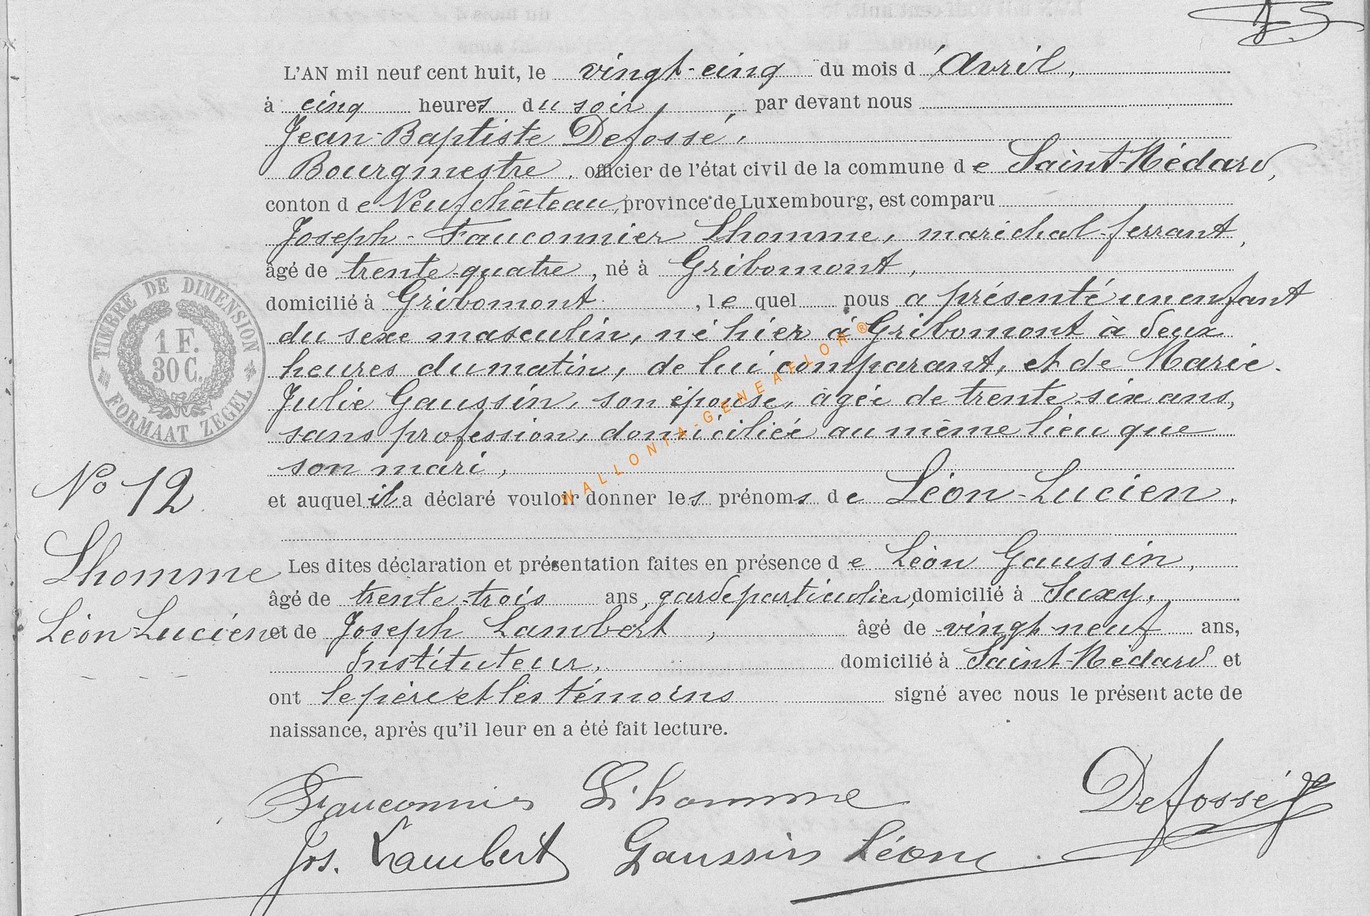 L'AN mil neuf cent huit, le vingt-cinq du mois d'Avril,
à cinq heures du soir, par devant nous
Jean-Baptiste Defossé,
Bourgmestre, officier de l'état civil de la commune de Saint-Médard,
conton de Neufchâteau, province de Luxembourg, est comparu
Joseph-Fauconnier Lhomme, maréchal-ferrant,
âgé de trente-quatre, né à Gribomont,
domicilié à Gribomont, lequel nous a présenté un enfant
du sexe masculin, né hier à Gribomont à deux
heures du matin, de lui comparant, et de Marie-
Julie Gaussin, son épouse, agée de trente-six ans,
sans profession, domiciliée au même lieu que
son mari,
et auquel il a déclaré vouloir donner les prénoms de Léon-Lucien,
Les dites déclaration et présentation faites en présence de Léon Gaussin,
âgé de trente-trois ans, garde particulier, domicilié à Suxy,
et de Joseph Lambert, âgé de vingt-neuf ans,
Instituteur, domicilié à Saint-Médard et
ont le père et les témoins signé avec nous le présent acte de
naissance, après qu'il leur en a été fait lecture.
Fauconnier Lhomme Defossé
Jos. Lambert Gaussin Léon
No 12
Lhomme
Léon-Lucien
TIMBRE DE DIMENSION
1 F.
30 C.
FORMAAT ZEGEL
WALLONIA-GENEAFLOR®